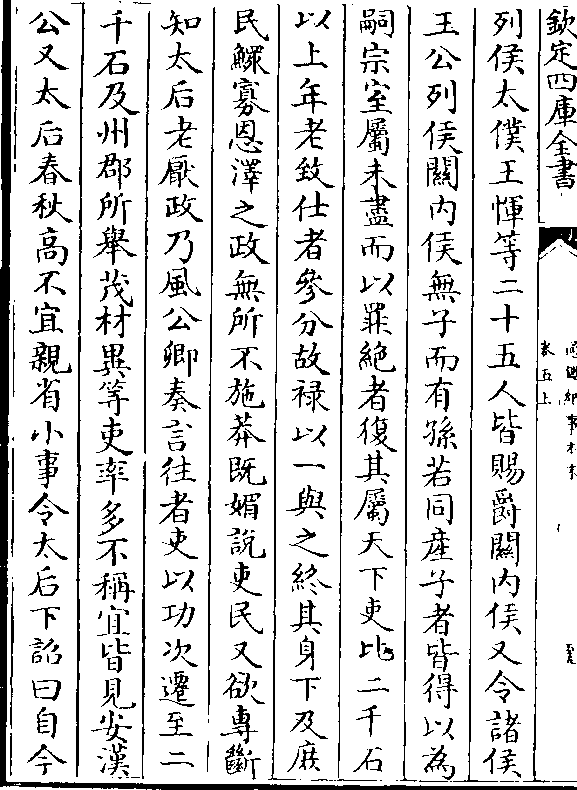 欽定四庫全書
卷五上
列侯太僕王惲等二十五人皆賜爵關內侯又令諸侯
王公列侯關內侯無子而有孫若同産子者皆得以為
嗣宗室屬未盡而以罪絶者復其屬天下吏比二千石
以上年老致仕者參分故祿以一與之終其身下及庶
民鰥寡恩澤之政無所不施莽既媚說吏民又欲專斷
知太后老厭政乃風公卿奏言往者吏以功次遷至二
千石及州郡所舉茂材異等吏率多不稱宜皆見安漢
公又太后春秋高不宜親省小事令太后下詔曰自今